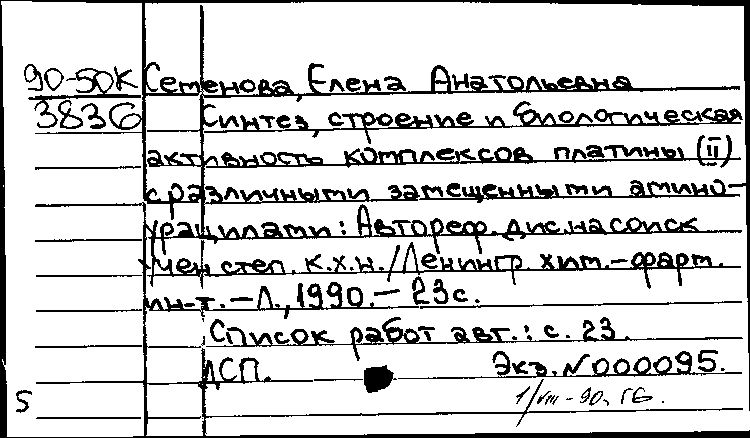 90-50К Семенова, Елена Анатольевна
3836 Синтез, строение и биологическая
активность комплексов платины (II)
с различными замещенными амино-
урацилами: Автореф. дис. на соиск
учен степ. к.х.н. / Ленингр. хим.-фарм.
ин-т. - Л., 1990. - 23 с.
Список работ авт.: с. 23.
ДСП. Экз. N 000095.
5 1/VIII-90г. ГБ.